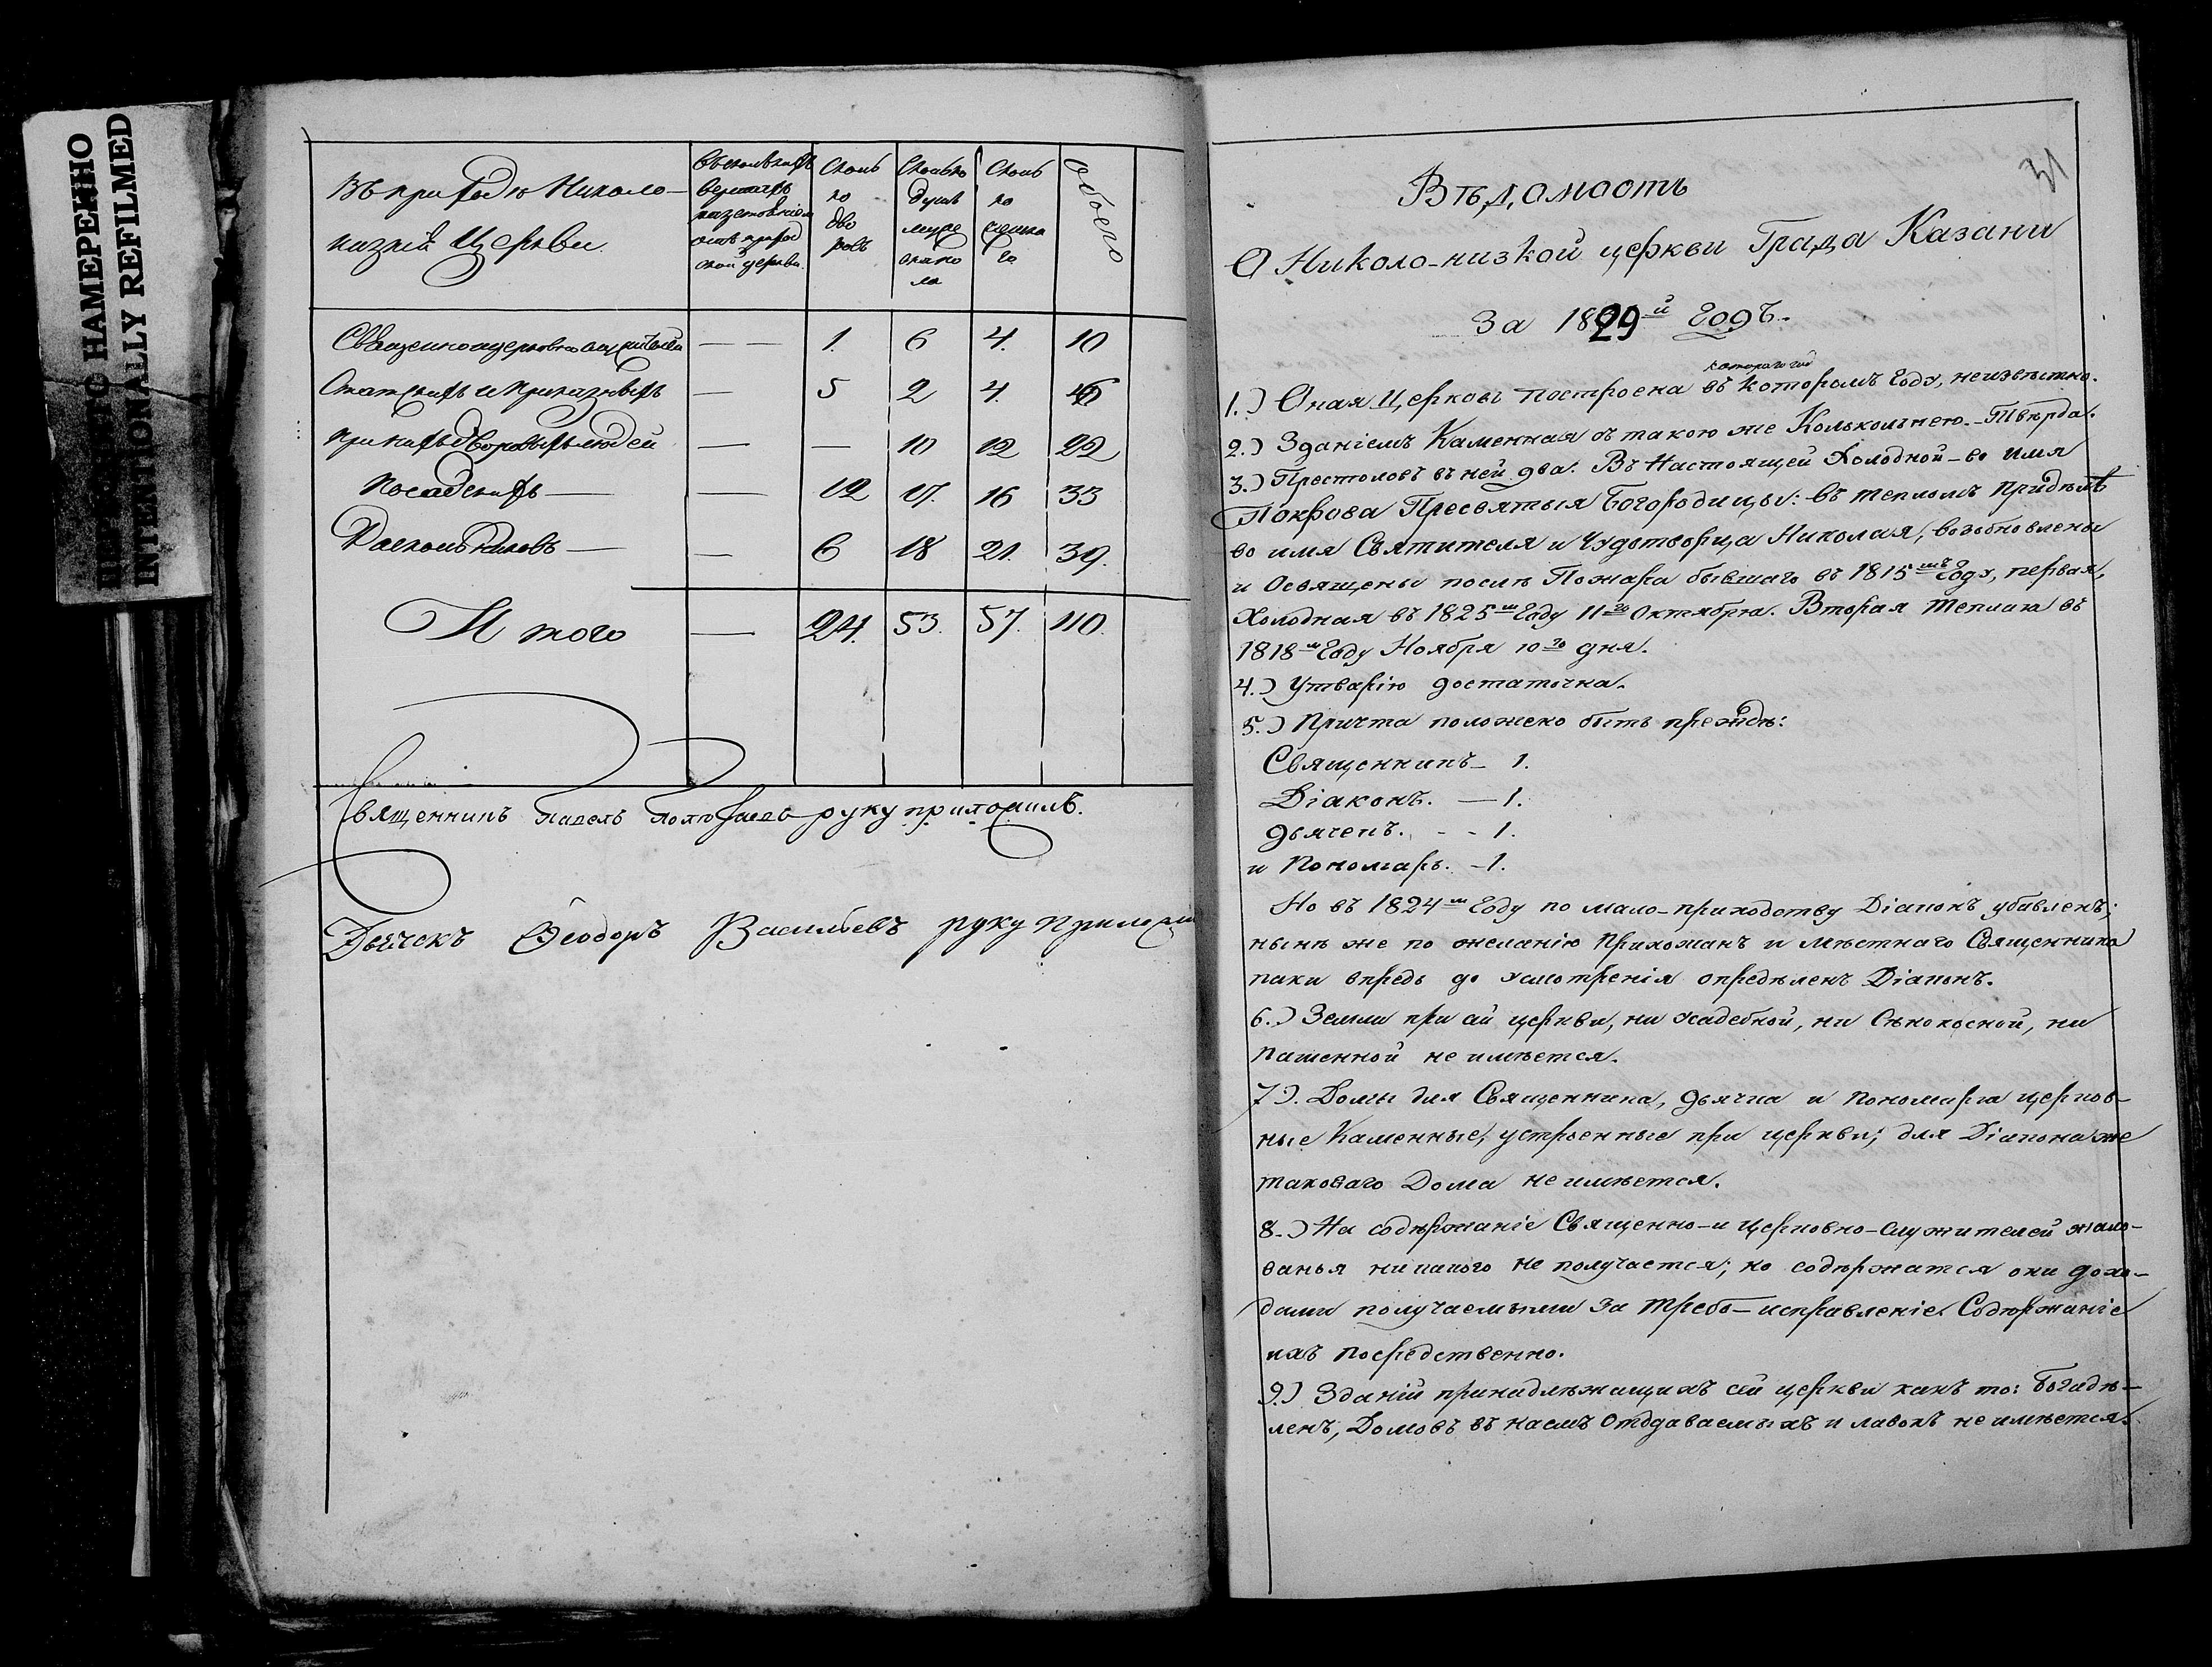 ПЕРЕСНЯТО НАМЕРЕННО
INTENTIONALLY REFILMED
Въ приходѣ Николо-
низкой Церкви
Въ сколькихъ верстахъ разстояніемъ отъ приходской церкви
Сколько дворовъ
Сколько душъ мужеска пола
Сколько женска го
Обоего
Священноцерковнослужителей — 1. 6 4. 10
Статскихъ и Приказныхъ — 5 2 4. 6
При нихъ дворовыхъ людей — — 10 12 22
Посадскихъ — — 12 17. 16 33
Раскольниковъ — — 6 18 21. 39.
И того — 24. 53. 57. 110.
Священникъ Павелъ руку приложилъ.
Дьячекъ Ѳеодоръ Васильевъ руку прилож
31
Вѣдомость
О Николо-низкой церкви Града Казани
За 1829й Годъ.
котораго
1.) Оная Церковь построена въ которомъ Году, неизвѣстно.
2.) Зданіемъ Каменная съ такою же Колокольнею. Твѣрда.
3.) Престоловъ въ ней два. Въ Настоящей Холодной - во имя
Покрова Пресвятыя Богородицы: въ тепломъ придѣлѣ
во имя Святителя и Чудотворца Николая, возобновлены
и Освящены послѣ Пожара бывшаго въ 1815мъ Году, первая,
Холодная въ 1825м Году 11го Октября. Вторая теплая въ
1818м Году Ноября 10го дня.
4.) Утварію достаточна.
5.) Причта положено быть прежде:
Священникъ - 1.
Діаконъ. — 1.
Дьячекъ. - - 1.
и Пономарь. - 1.
Но въ 1824м Году по мало-приходству Діаконъ убавленъ;
нынѣ же по желанію Прихожанъ и мѣстнаго Священника
паки впредь до усмотренія опредѣленъ Діаконъ.
6.) Земли при сей церкви, ни усадебной, ни Сѣнокосной, ни
пашенной не имѣется.
7). Домы для Священника, Дьячка и Пономаря церков-
ные Каменные, устроенные при церкви; для Діакона же
таковаго Дома не имѣется.
8.) На содѣржаніе Священно-и Церковно-служителей жало-
ванья никакого не получается; но содѣржатся они дохо-
дами получаемыми за требо-исправленіе. Содѣржаніе
ихъ посредственно.
9.) Зданій принадлѣжащихъ сей церкви какъ то: Богадѣ-
ленъ, Домовъ въ наемъ Отдаваемыхъ и лавокъ не имѣется.